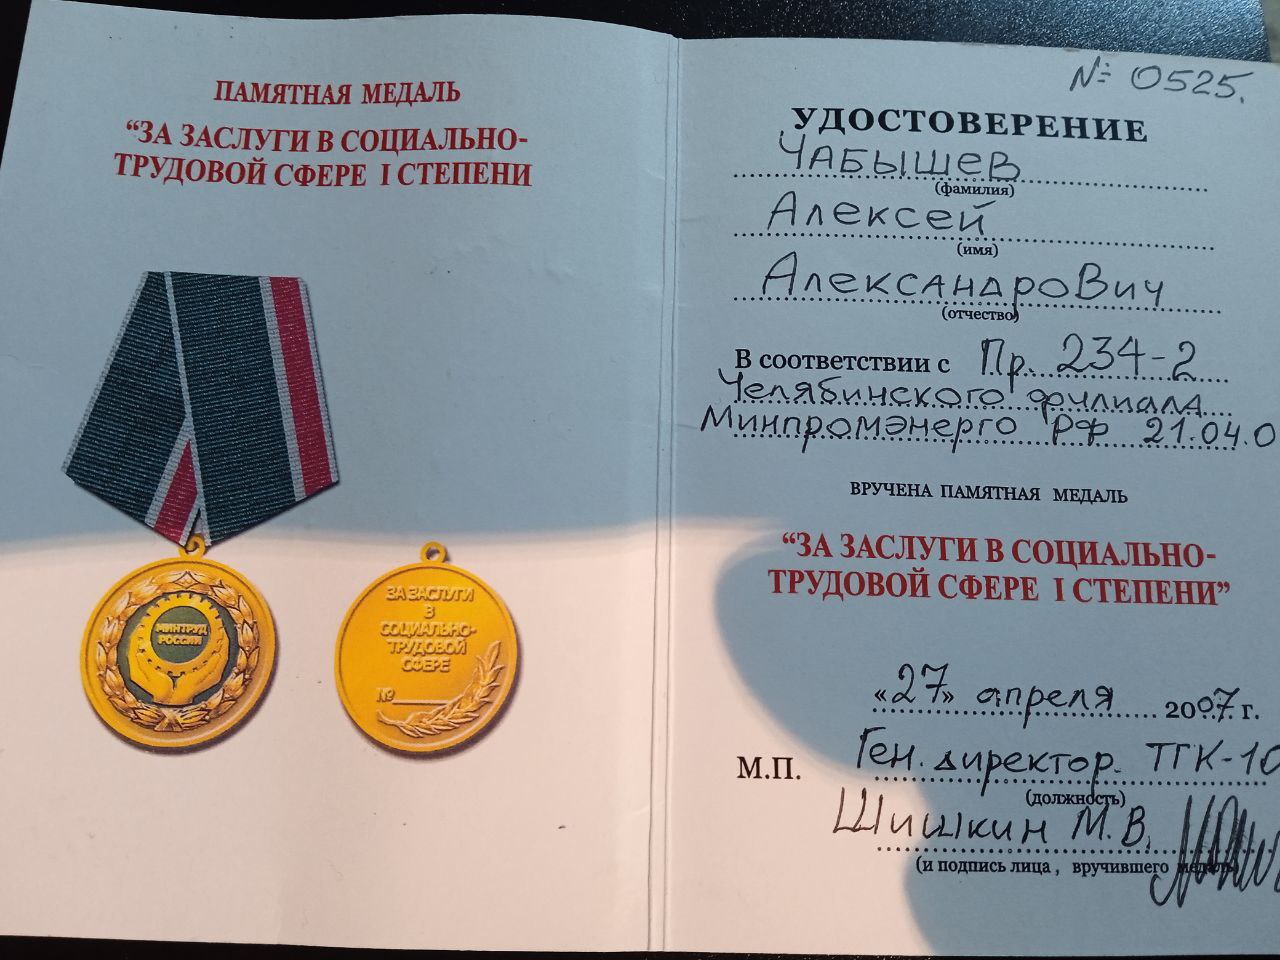 ПАМЯТНАЯ МЕДАЛЬ
“ЗА ЗАСЛУГИ В СОЦИАЛЬНО-
ТРУДОВОЙ СФЕРЕ I СТЕПЕНИ
МИНТРУД
РОССИИ
ЗА ЗАСЛУГИ
В
СОЦИАЛЬНО-
ТРУДОВОЙ
СФЕРЕ
№
№ 0525.
УДОСТОВЕРЕНИЕ
Чабышев
(фамилия)
Алексей
(имя)
Александрович
(отчество)
В соответствии с Пр. 234-2
Челябинского филиала
Минпромэнерго РФ 21.04.0
ВРУЧЕНА ПАМЯТНАЯ МЕДАЛЬ
“ЗА ЗАСЛУГИ В СОЦИАЛЬНО-
ТРУДОВОЙ СФЕРЕ I СТЕПЕНИ”
«27» апреля 2007 г.
М.П. Ген. директор. ТГК-10
(должность)
Шишкин М.В.
(и подпись лица, вручившего медаль)